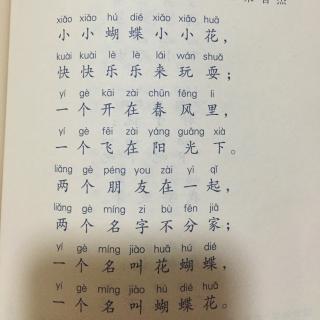 xiǎo xiǎo hú dié xiǎo xiǎo huā
小小蝴蝶小小花，
kuài kuài lè lè lái wán shuǎ
快快乐乐来玩耍；
yí gè kāi zài chūn fēng lǐ
一个开在春风里，
yí gè fēi zài yáng guāng xià
一个飞在阳光下。
liǎng gè péng you zài yì qǐ
两个朋友在一起，
liǎng gè míng zi bù fēn jiā
两个名字不分家；
yí gè míng jiào huā hú dié
一个名叫花蝴蝶，
yí gè míng jiào hú dié huā
一个名叫蝴蝶花。